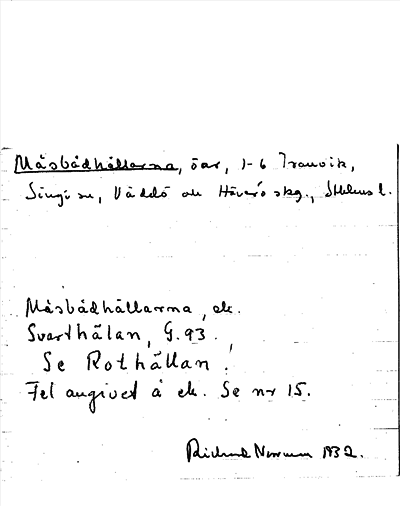 Måsbådhällarna, öar, 1-6 Tranvik,
Singö sn, Väddö och Häverö skg., Sthlms l.
Måsbådhällarna, ek.
Svarthälan, G.93.
Se Rothällan.
Fel angivet å ek. Se nr 15.
Rickard 1932.